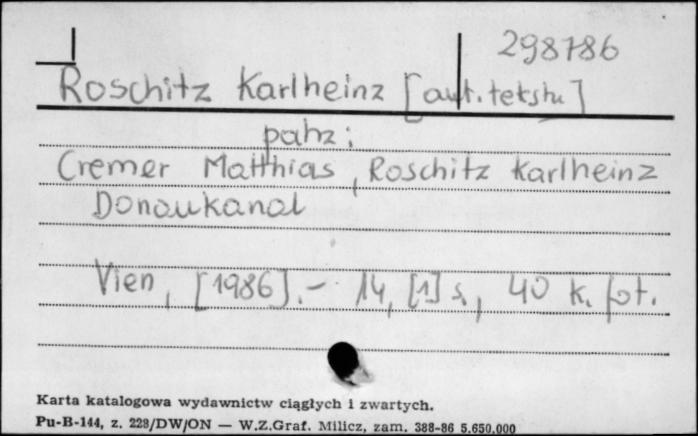 298786
Roschitz Karlheinz [aut. tekstu]
patrz:
Cremer Matthias, Roschitz Karlheinz
Donaukanal
Vien, [1986].- 14, [1] s., 40 k. fot.
Karta katalogowa wydawnictw ciągłych i zwartych.
Pu-B-144, z. 228/DW/ON — W.Z.Graf. Milicz, zam. 388-86 5.650.000